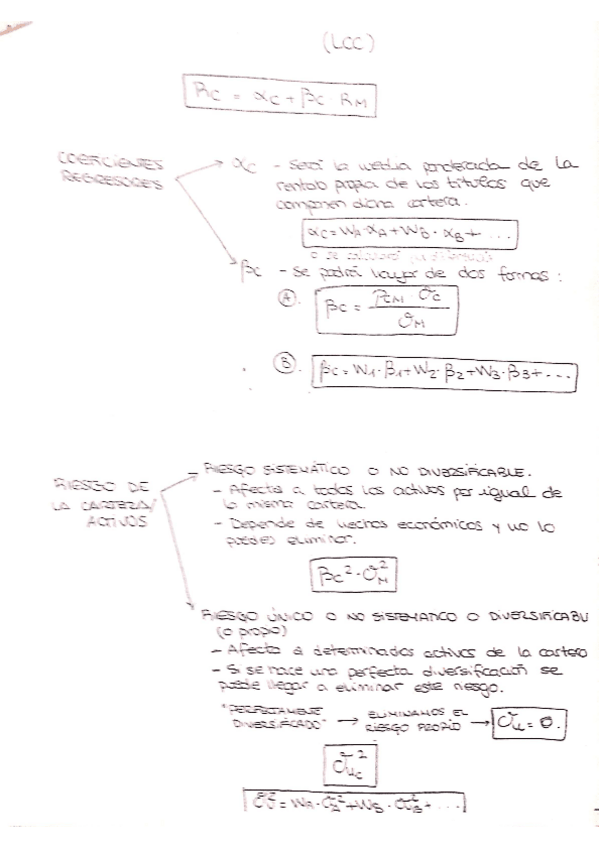 (LCC)
RC = αC + βC · RM
COEFICIENTES
REGRESORES
αC - Será la media ponderada de la
rentab propia de los títulos que
componen dicha cartera.
αC = WA · αA + WB · αB + ...
o se calculará
βC - Se podrá hayar de dos formas :
Ⓐ. βC = ρCM · σC
σM
Ⓑ. βC = W1 · β1 + W2 · β2 + W3 · β3 + ...
RIESGO DE
LA CARTERA/
ACTIVOS
- RIESGO SISTEMÁTICO O NO DIVERSIFICABLE.
- Afecta a todos los activos por igual de
la misma cartera.
- Depende de hechos económicos y no lo
puedes eliminar.
βC² · σM²
RIESGO ÚNICO O NO SISTEMATICO O DIVERSIFICABLE
(o propio)
- Afecta a determinados activos de la cartera
- Si se hace una perfecta diversificación se
puede llegar a eliminar este riesgo.
"PERFECTAMENTE
DIVERSIFICADO" → ELIMINAMOS EL
RIESGO PROPIO → σu = 0.
σuC²